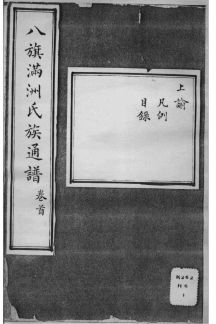 上諭
凡例
目錄
八旗滿洲氏族通譜 卷首